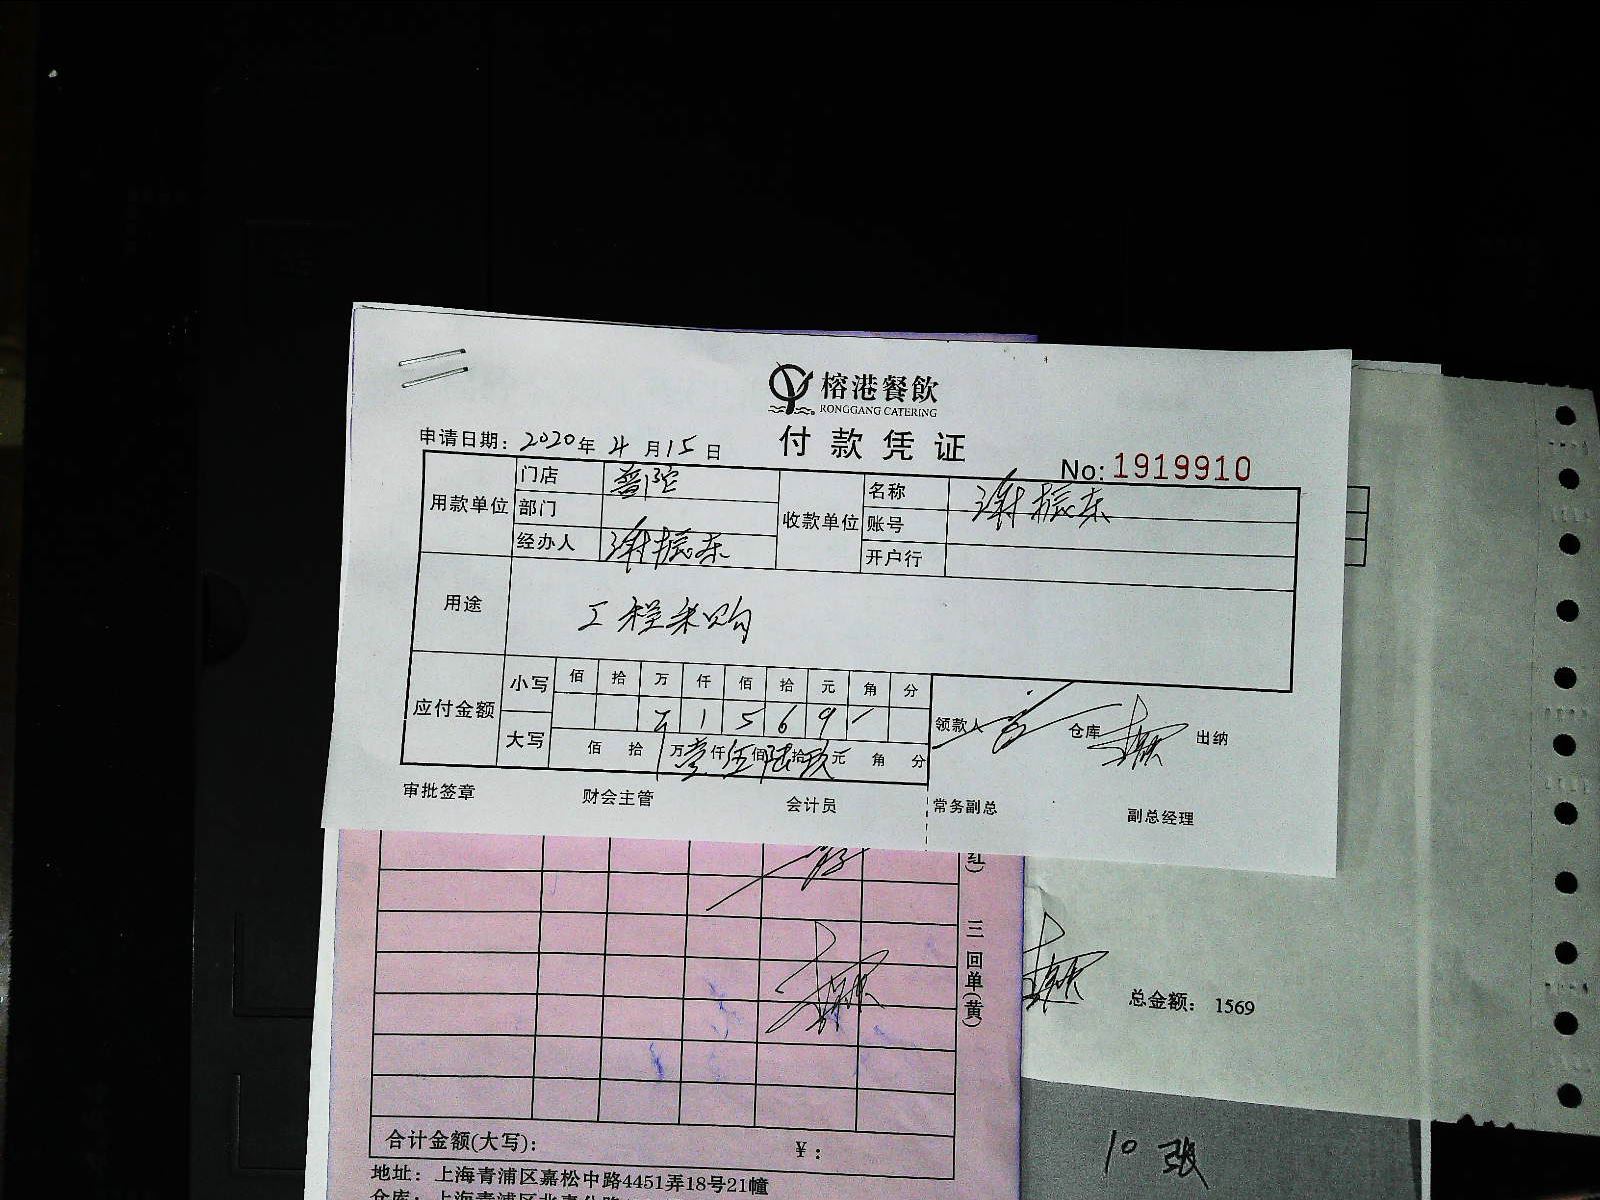 榕港餐飲
RONGGANG CATERING
付款凭证
申请日期: 2020年 4月15日
No: 1919910
用款单位 门店 普陀
部门
经办人 谢振东
收款单位 名称 谢振东
账号
开户行
用途 工程采购
应付金额 小写 佰 拾 万 仟 佰 拾 元 角 分
1 5 6 9
大写 佰 拾 万壹仟伍佰陆拾玖元 角 分
领款人 仓库 出纳
审批签章 财会主管 会计员 常务副总 副总经理
红)
三
回单(黄)
总金额: 1569
10张
合计金额(大写): ¥:
地址: 上海青浦区嘉松中路4451弄18号21幢